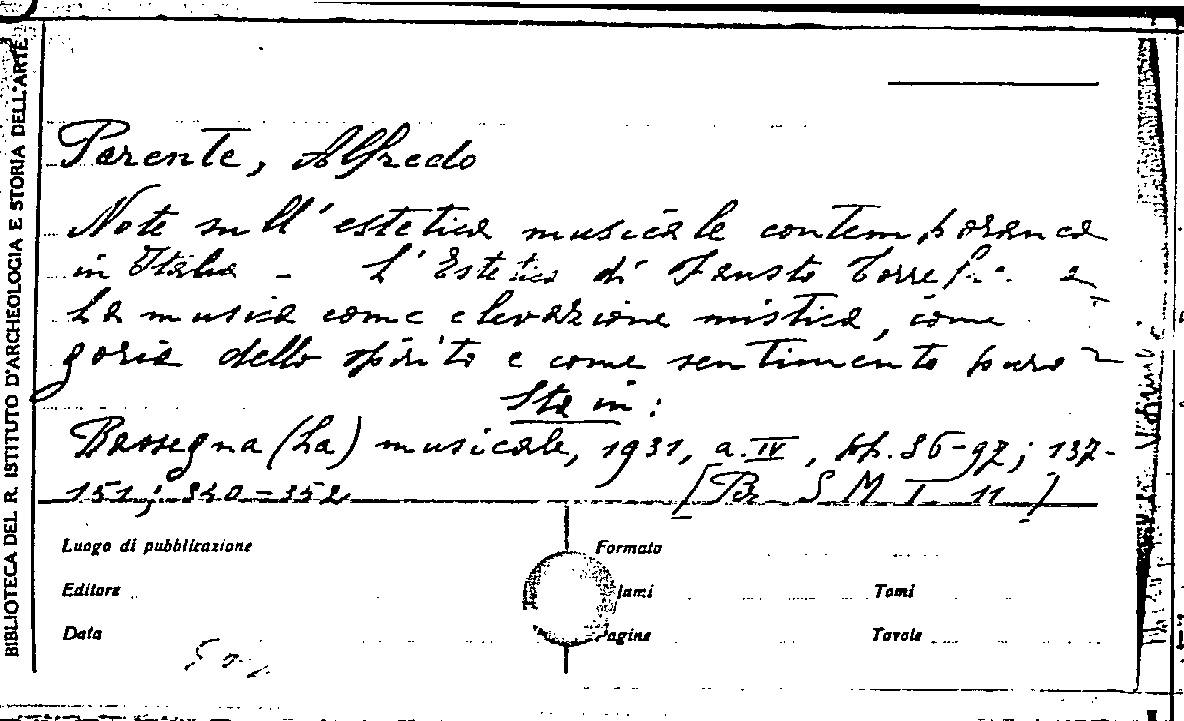 BIBLIOTECA DEL R. ISTITUTO D'ARCHEOLOGIA E STORIA DELL'ARTE
Parente, Alfredo
Note sull'estetica musicale contemporanea
in Italia - L'Estetica di Fausto Torrefr.a
La musica come elevazione mistica, come
goria dello spirito e come sentimento puro
Sta in:
Rassegna (La) musicale, 1931, a. IV, pp. 86-97; 137-
151; 340-352 [Br S M I 11]
Luogo di pubblicazione
Formato
Editore
lami
Tomi
Data
Pagine
Tavole